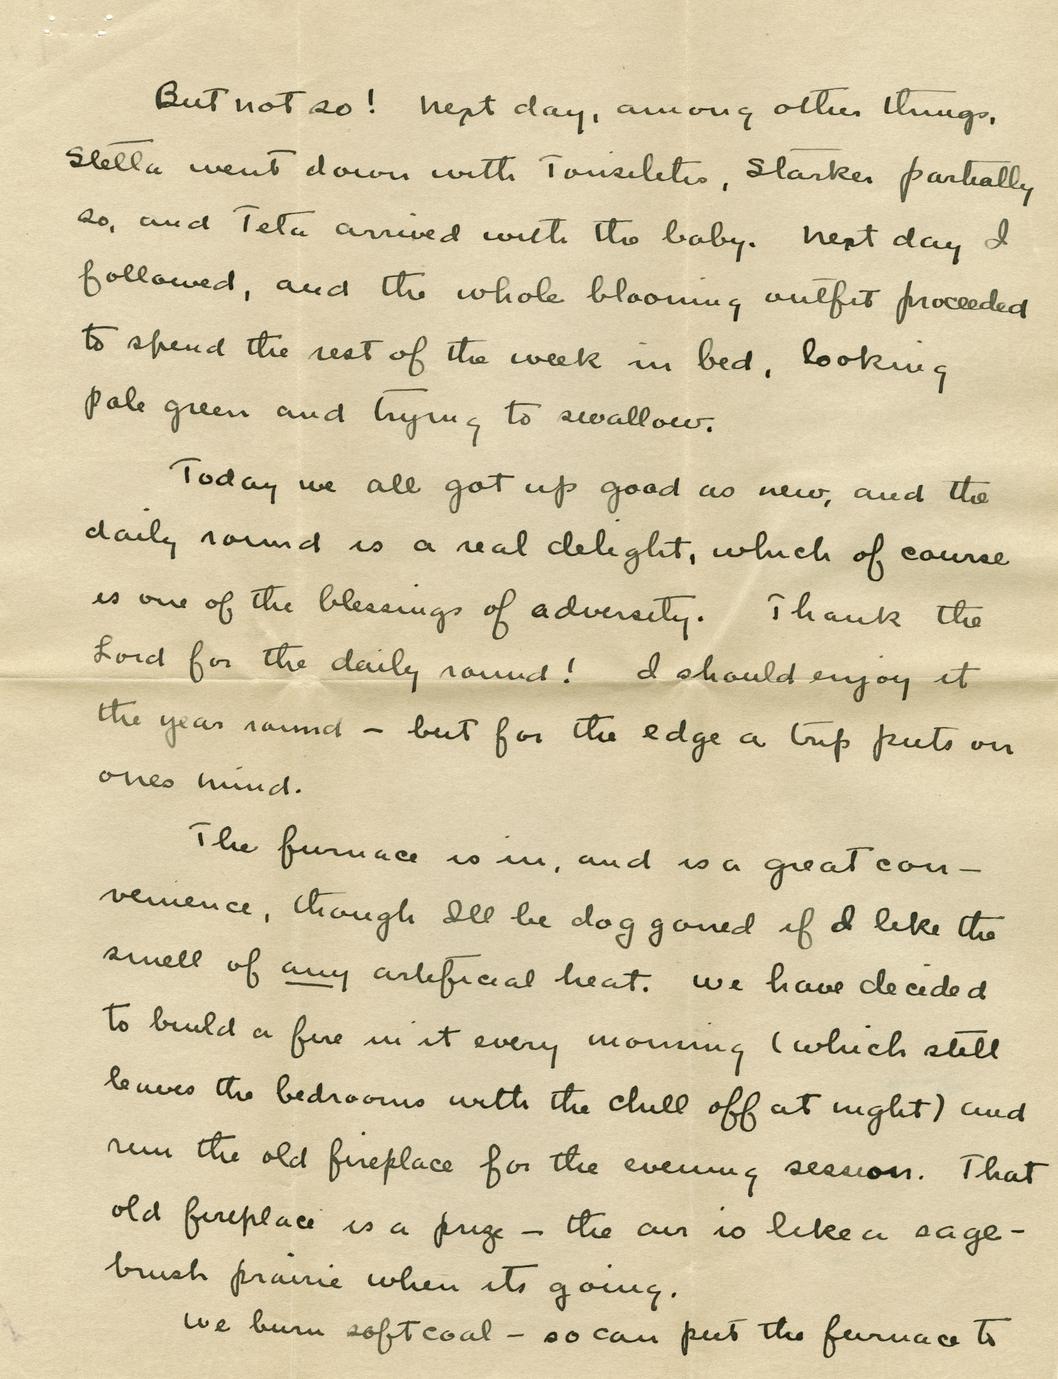 But not so! Next day, among other things,
Stella went down with Tonsiletis, Starker partially
so, and Teta arrived with the baby. Next day I
followed, and the whole blooming outfit proceeded
to spend the rest of the week in bed, looking
pale green and trying to swallow.
Today we all got up good as new, and the
daily round is a real delight, which of course
is one of the blessings of adversity. Thank the
Lord for the daily round! I should enjoy it
the year round – but for the edge a trip puts on
ones mind.
The furnace is in, and is a great con–
venience, though Ill be dog goned if I like the
smell of any artificial heat. We have decided
to build a fire in it every morning (which still
leaves the bedrooms with the chill off at night) and
run the old fireplace for the evening session. That
old fireplace is a prize – the air is like a sage–
brush prairie when its going.
We burn soft coal – so can put the furnace to